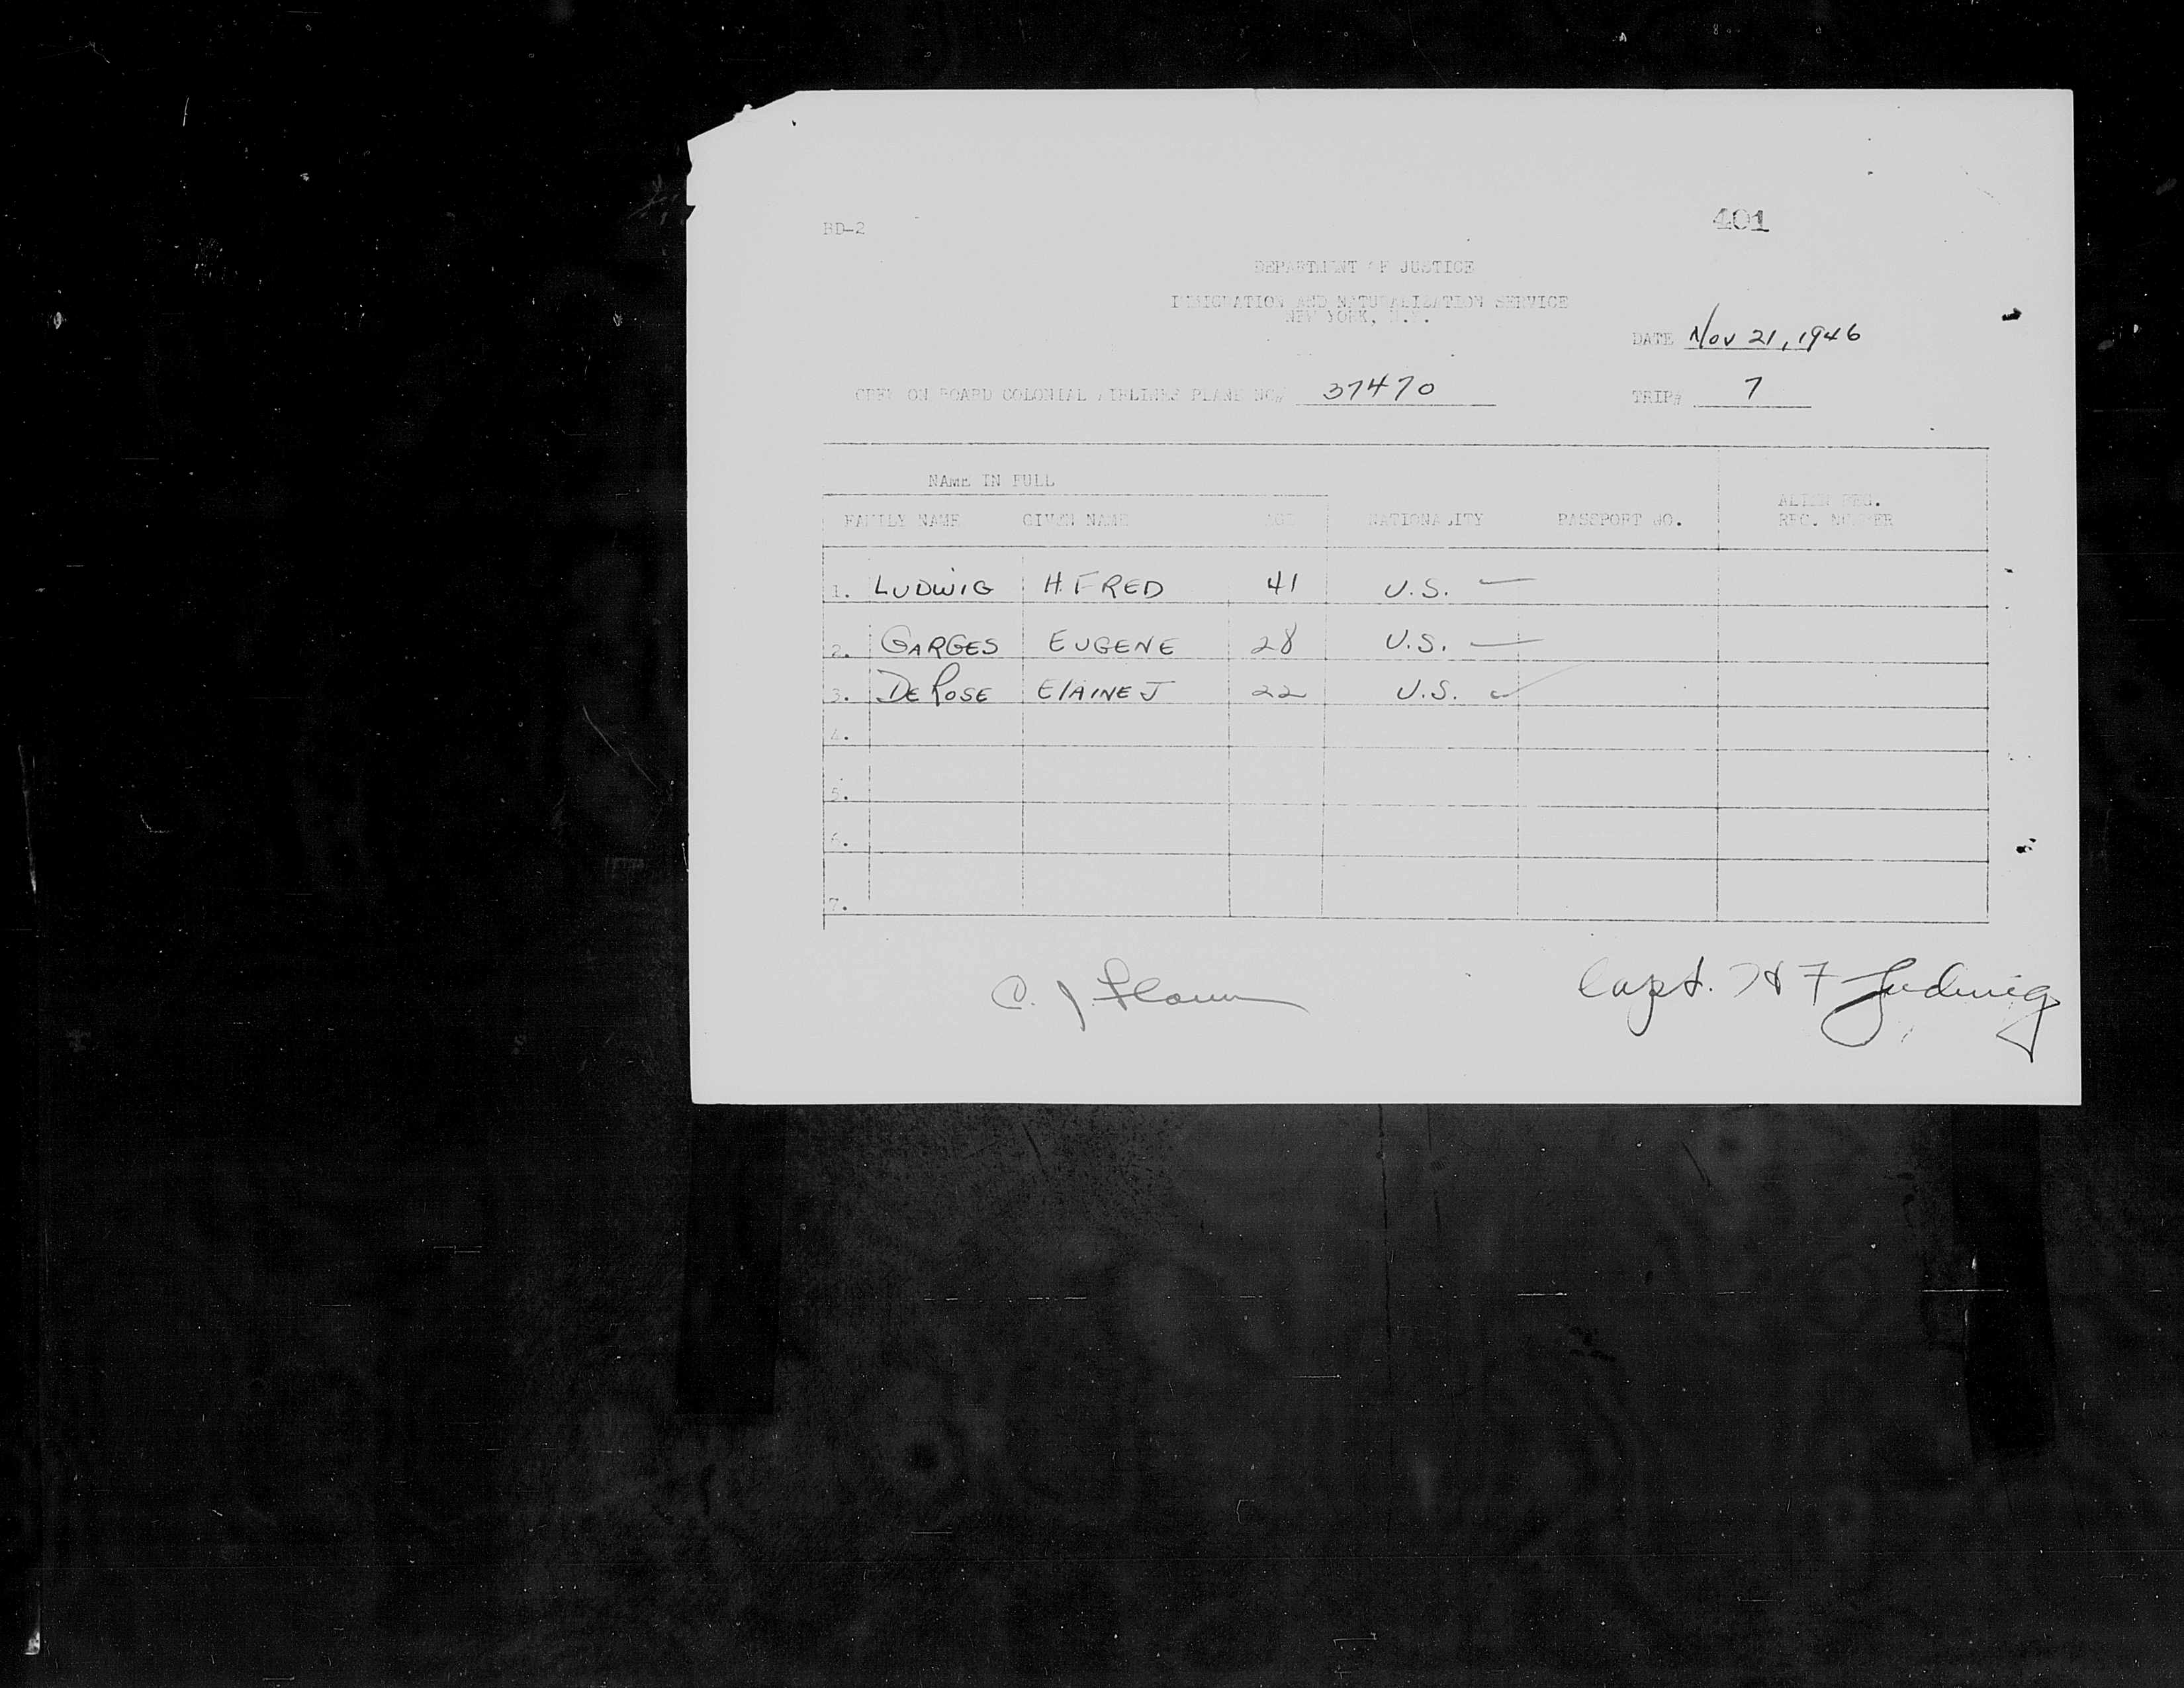 BD-2
401
DEPARTMENT OF JUSTICE
IMMIGRATION AND NATURALIZATION SERVICE
NEW YORK, N.Y.
DATE Nov 21, 1946
CREW ON BOARD COLONIAL AIRLINES PLANE NO# 37470 TRIP# 7
NAME IN FULL
ALIEN REG.
FAMILY NAME GIVEN NAME AGE NATIONALITY PASSPORT NO. REC. NUMBER
1. LUDWIG H. FRED 41 U.S. —
2. GARGES EUGENE 28 U.S. —
3. DEROSE ELAINE J 22 U.S. ✓
4.
5.
6.
7.
Capt. H F Ludwig